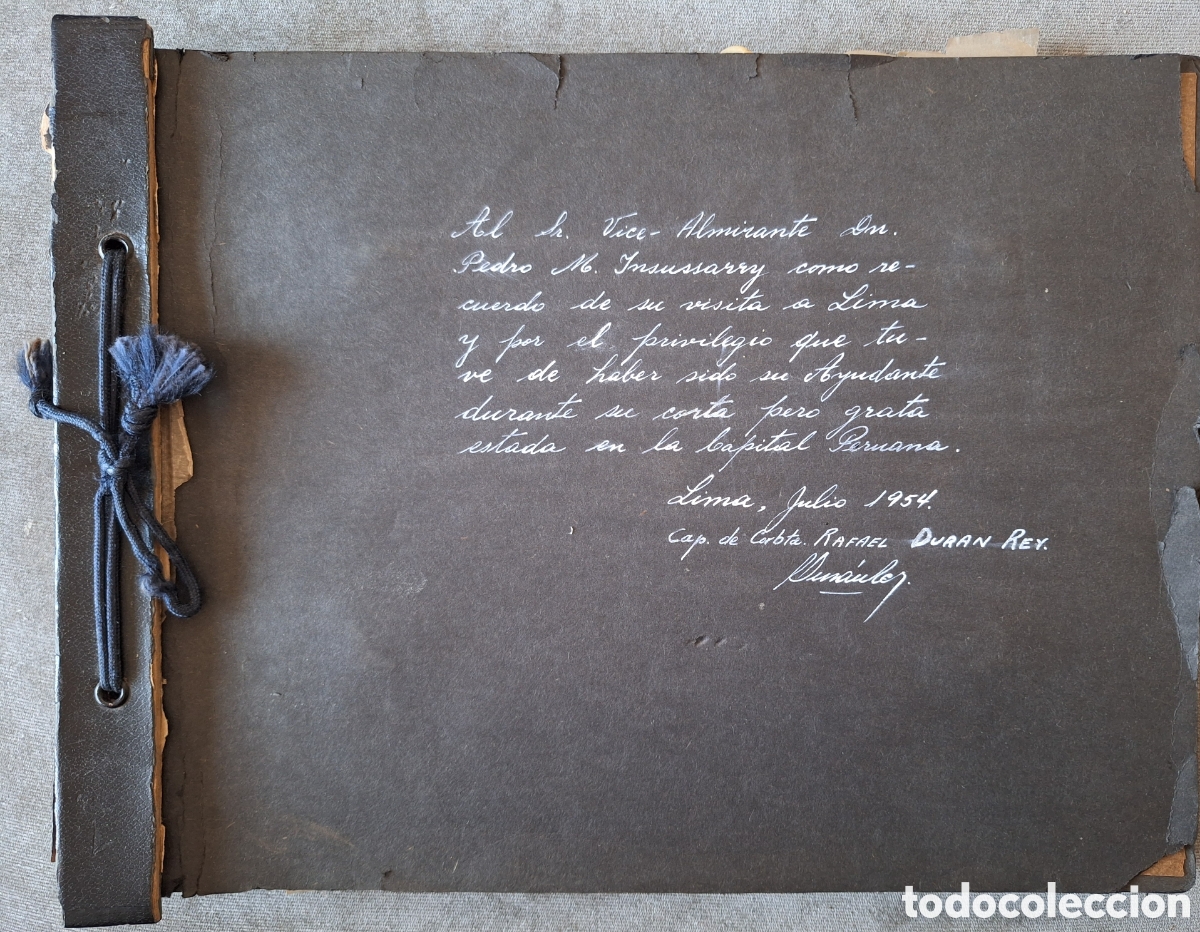 Al Sr. Vice-Almirante Dn.
Pedro M. Insussarry como re-
cuerdo de su visita a Lima
y por el privilegio que tu-
ve de haber sido su Ayudante
durante su corta pero grata
estada en la Capital Peruana.
Lima, Julio 1954.
Cap. de Corbta. RAFAEL DURAN REY.
todocoleccion